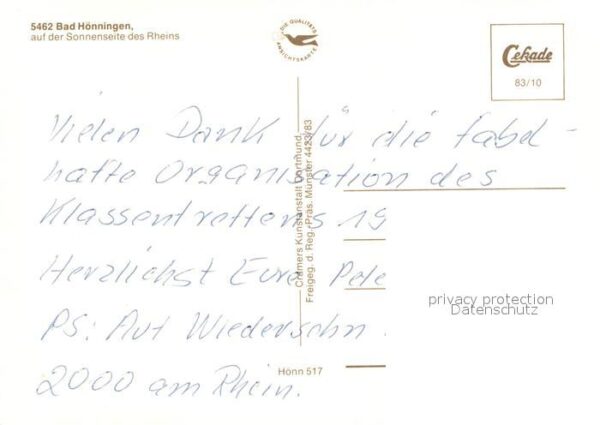 5462 Bad Hönningen,
auf der Sonnenseite des Rheins
DIE QUALITÄTS ANSICHTSKARTE
Cekade
83/10
Vielen Dank für die fabel-
hafte Organisation des
Klassentreffens 19
Herzlichst Eure Pete
PS: Auf Wiedersehn
2000 am Rhein.
Cramers Kunstanstalt Dortmund
Freigeg. d. Reg.-Präs. Münster 4423/83
privacy protection
Datenschutz
Hönn 517